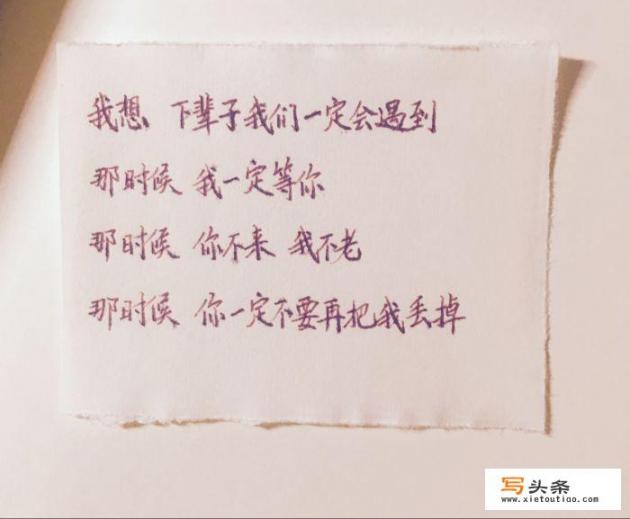 我想、下辈子我们一定会遇到
那时候 我一定等你
那时候 你不来 我不老
那时候、你一定不要再把我丢掉
写头条
www.xietoutiao.com